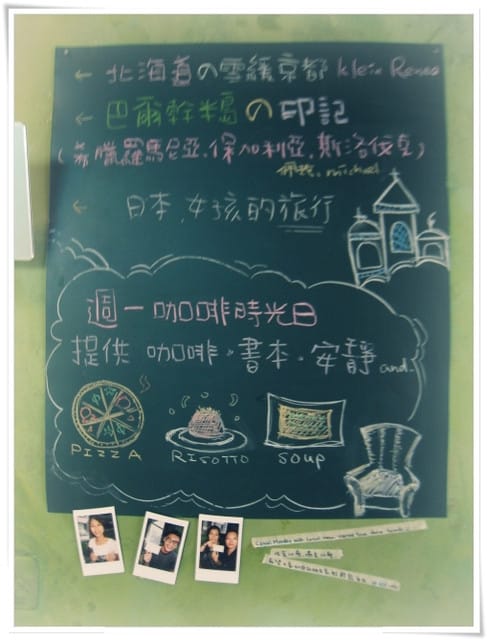 ← 北海道の雪緩京都 klein Renee
← 巴爾幹半島の印記
(希臘羅馬尼亞.保加利亞.斯洛伐克)
michael
← 日本.女孩的旅行
週一咖啡時光日
提供 咖啡.書本.安靜 and.
PIZZA RISOTTO SOUP